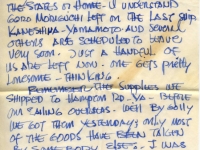 THE STATES OR HOME - I UNDERSTAND
GORO MORIGUCHI LEFT ON THE LAST SHIP.
KANESHIMA - YAMAMOTO AND SEVERAL
OTHERS ARE SCHEDULED TO LEAVE
VERY SOON. JUST A HANDFUL OF
US ARE LEFT NOW. ONE GETS PRETTY
LONESOME - THINKING.
REMEMBER THE SUPPLIES WE
SHIPPED TO HAMPTON RD. VA - BEFORE
OUR SAILING OVERSEAS. WELL BY GOLLY
WE GOT THEM YESTERDAY; ONLY MOST
OF THE GOODS HAVE BEEN TAKEN
BY SOMEBODY ELSE. I WAS